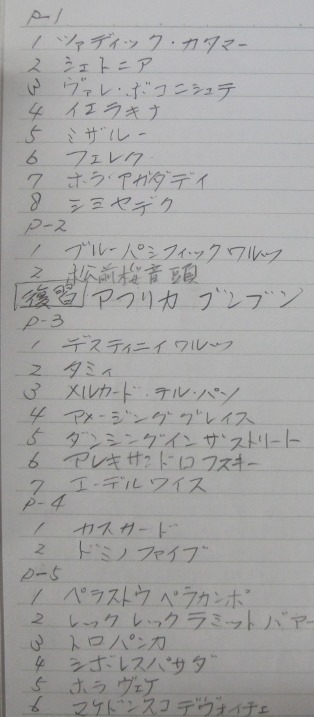 P-1
1 ツァディック・カタマー
2 シェトニア
3 ヴァレ・ボコニシュテ
4 イエラキナ
5 ミザルー
6 フェレク
7 ホラ・アガダディ
8 シミヤデク
P-2
1 ブルーパシフィックワルツ
2 松前桜音頭
復習 アフリカ ブンブン
P-3
1 デスティニイワルツ
2 タミィ
3 メルカード・テル・パソ
4 アメージンググレイス
5 ダンシングイン ザストリート
6 アレキサンドロフスキー
7 エーデルワイス
P-4
1 カスカード
2 ドミノファイブ
P-5
1 ペラストウ ペラカンポ
2 レック レック ラミット バヤー
3 トロパンカ
4 シボレスバサダ
5 ホラ ヴェケ
6 マケドンスコデヴォイチェ